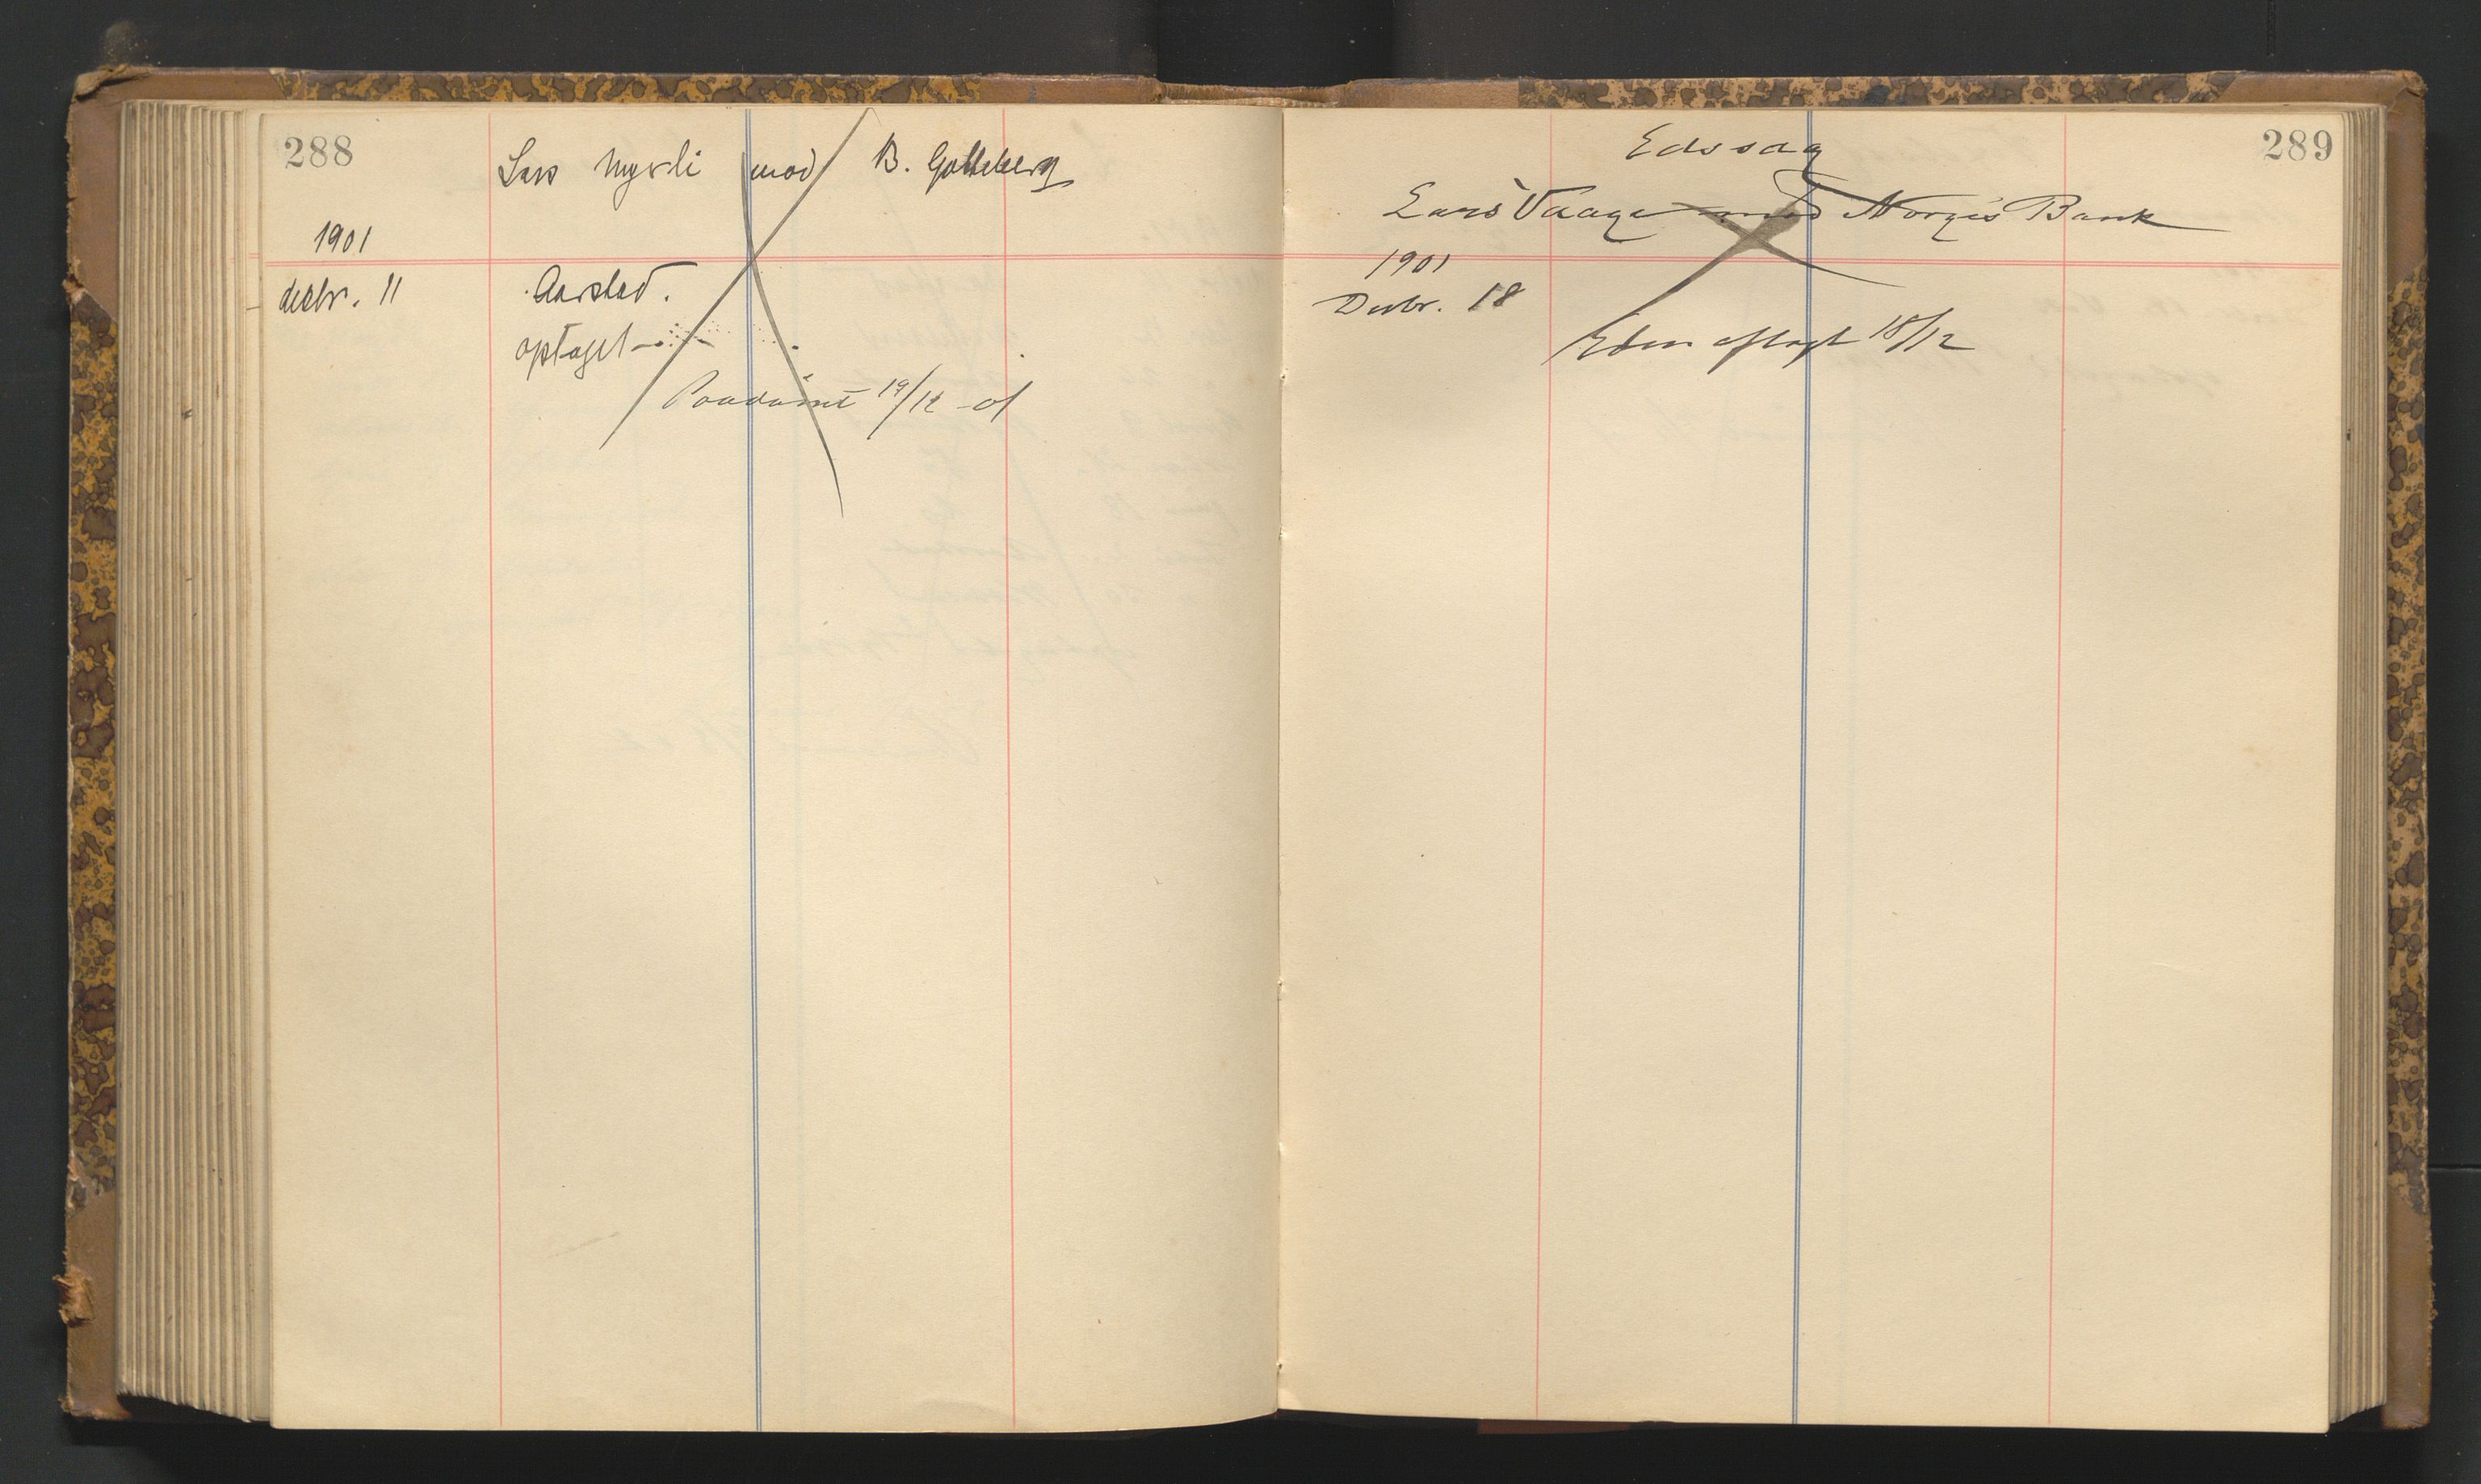 288
Lars Myrli mod B. Gotteberg
1901
decbr. 11 Aarstad.
optaget
Paadömt 19/12 01
289
Edssag
Lars Vaage mod Norges Bank
1901
Decbr. 18
Eden aflagt 18/12